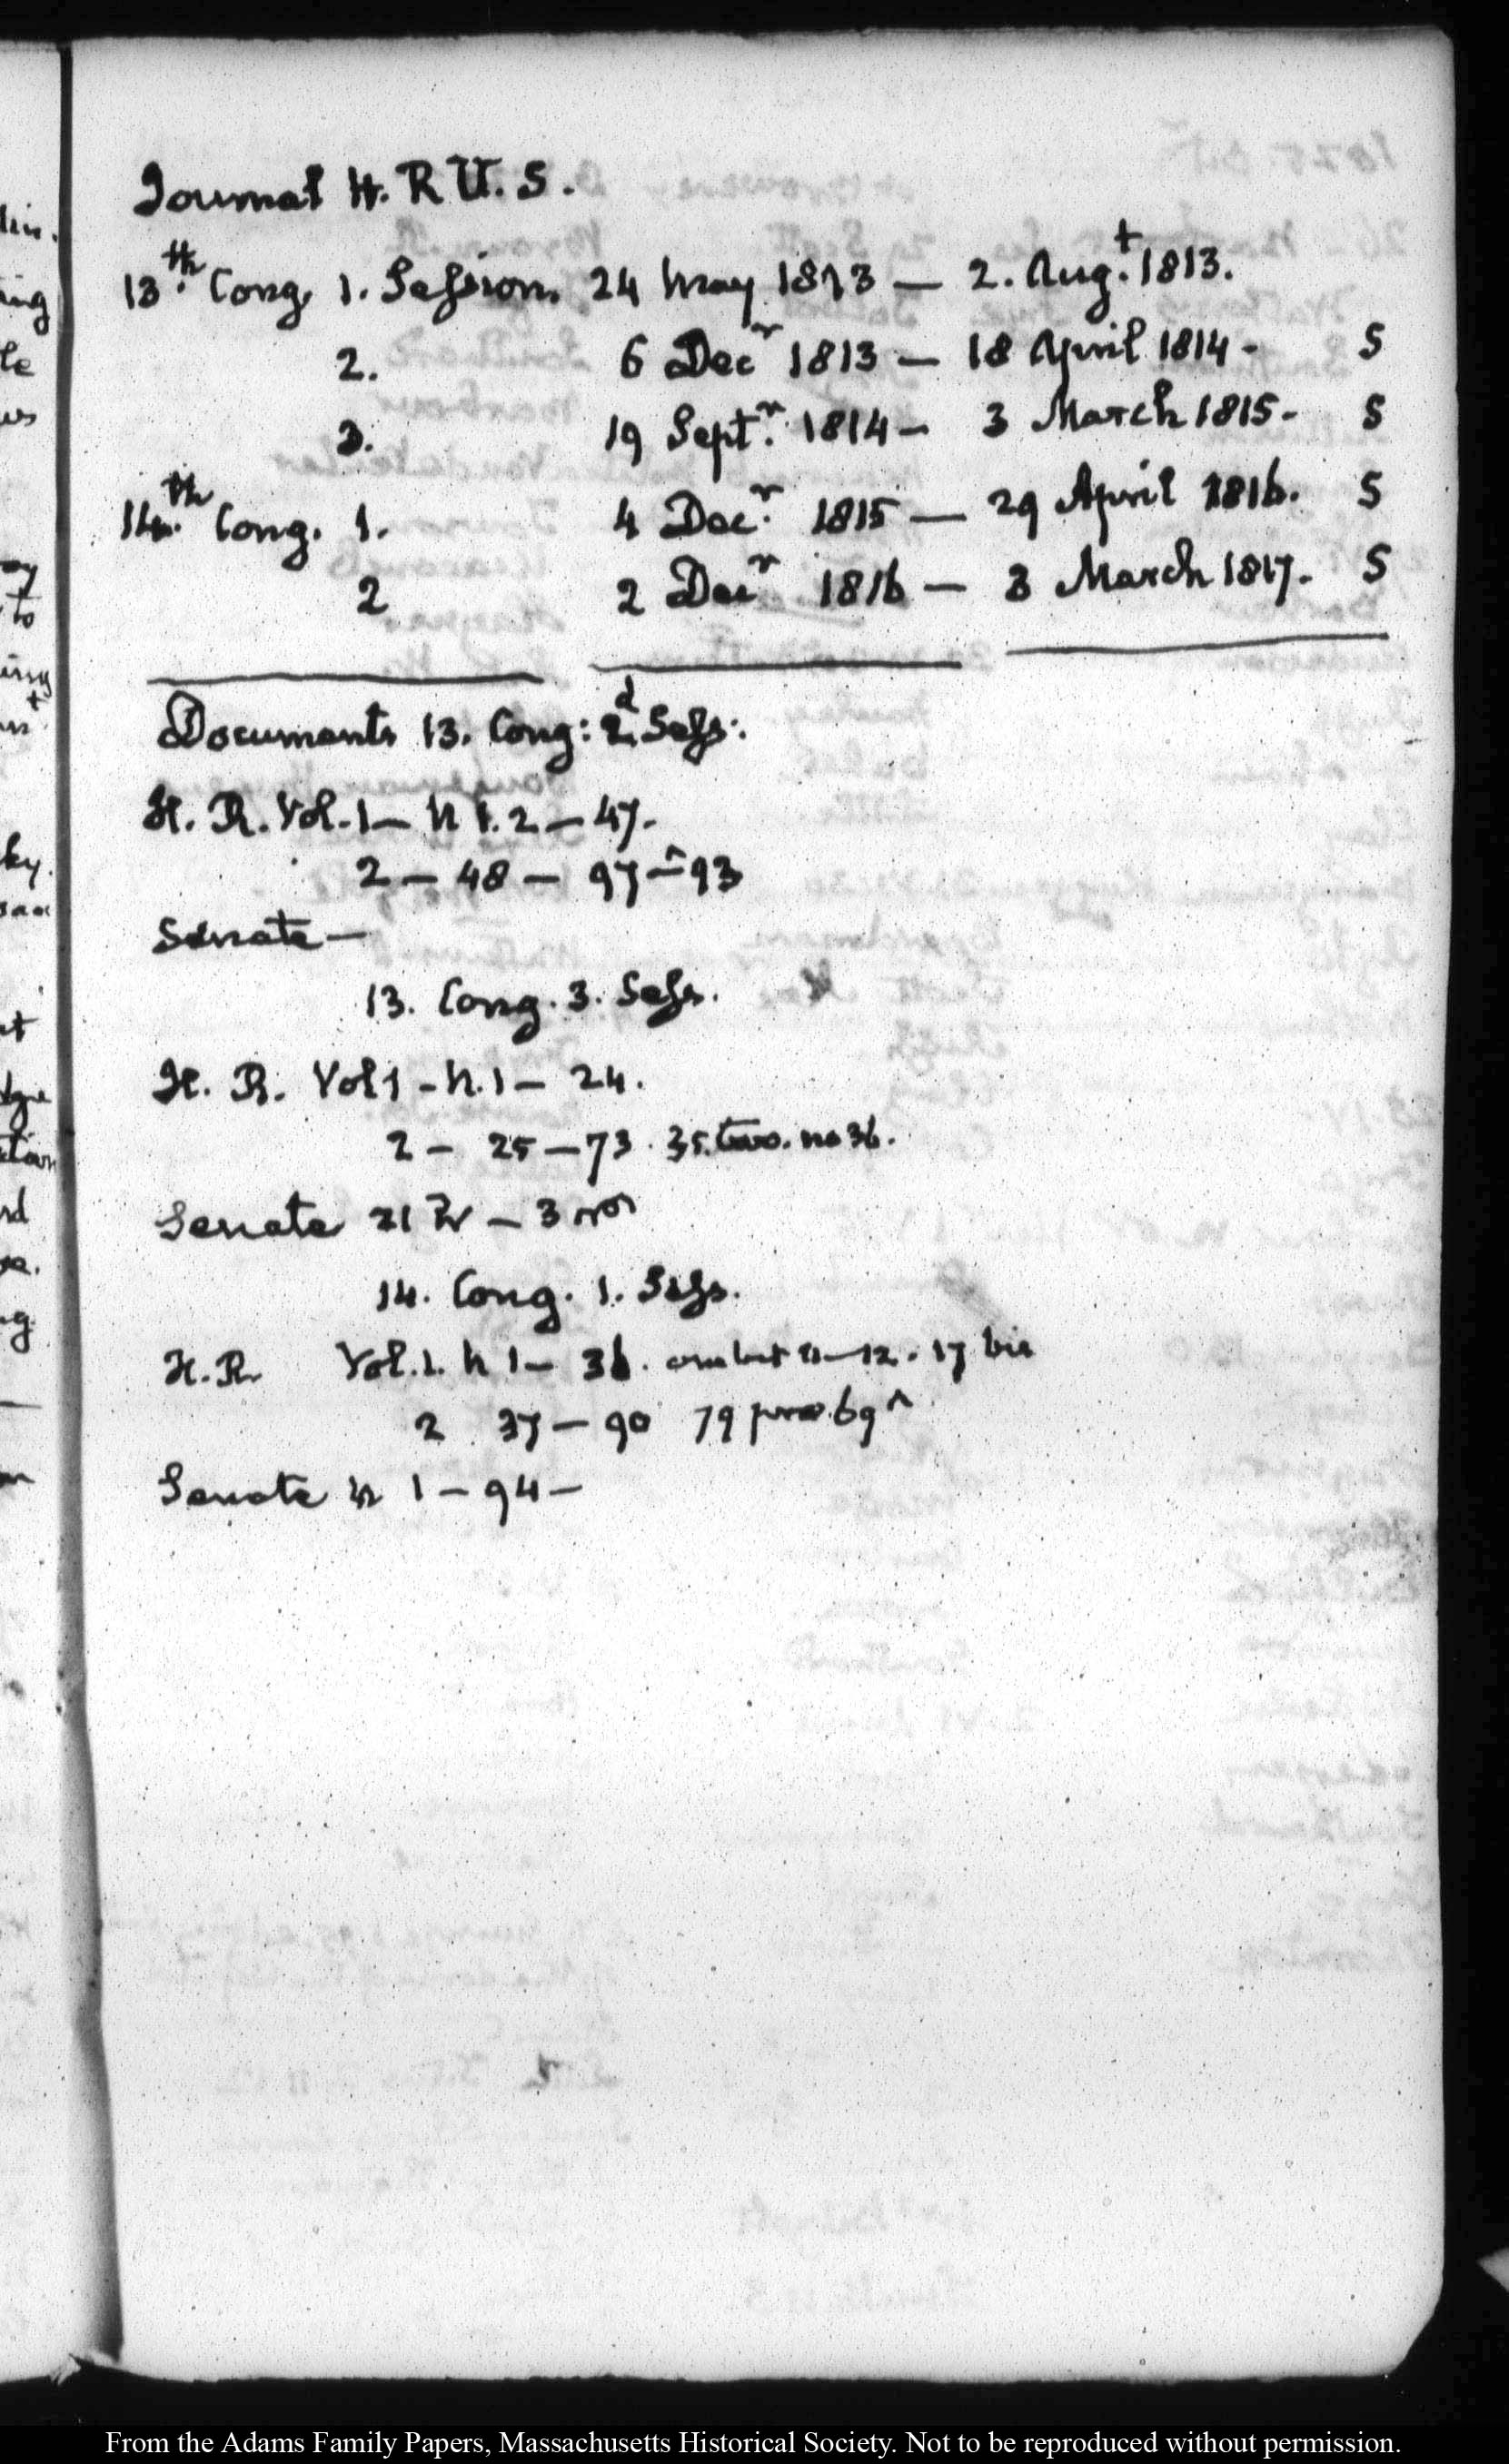 Journal H. R U. S.
13th. Cong. 1. Session. 24 May 1813 — 2. Augt. 1813.
2. 6 Decr 1813 — 18 April 1814 - S
3. 19 Septr. 1814 — 3 March 1815 - S
14th. Cong. 1. 4 Decr. 1815 — 29 April 1816. S
2 2 Decr 1816 — 3 March 1817. S
Documents 13. Cong: 2d Sess:
H. R. Vol. 1 — N 1. 2 — 47.
2 — 48 — 97 — 93
Senate —
13. Cong. 3. Sess.
H. R. Vol 1 - N. 1 — 24.
2 — 25 — 73. 35. two. no 36.
Senate 21 — 3
14. Cong. 1. Sess.
H. R. Vol. 1. N 1 — 36. 11 — 12. 17 bis
2 37 — 90 79 pro. 69
Senate N 1 — 94 —
From the Adams Family Papers, Massachusetts Historical Society. Not to be reproduced without permission.